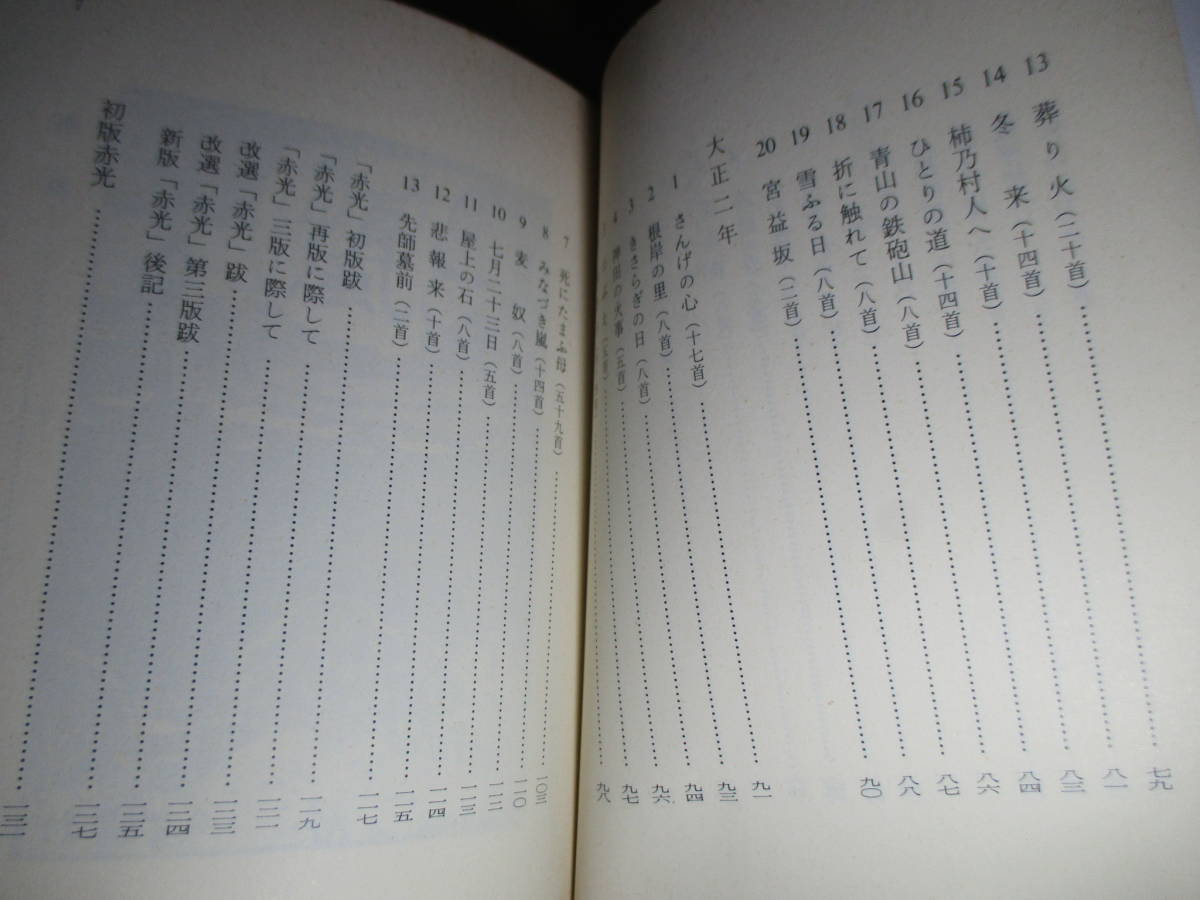 13 葬り火（二十首）……七九
14 冬来（十四首）……八一
15 柿乃村人へ（十首）……八三
16 ひとりの道（十四首）……八四
17 青山の鉄砲山（八首）……八六
18 折に触れて（八首）……八七
19 雪ふる日（八首）……八八
20 宮益坂（二首）……九〇
大正二年
1 さんげの心（十七首）……九一
2 根岸の里（八首）……九三
3 きさらぎの日（八首）……九四
4 神田の火事（五首）……九六
……九七
……九八
7 死にたまふ母（五十九首）……一〇三
8 みなづき嵐（十四首）……一一〇
9 麦奴（八首）……一一二
10 七月二十三日（五首）……一一三
11 屋上の石（八首）……一一四
12 悲報来（十首）……一一五
13 先師墓前（二首）……一一七
「赤光」初版跋……一一九
「赤光」再版に際して……一二一
「赤光」三版に際して……一二三
改選「赤光」跋……一二四
改選「赤光」第三版跋……一二五
新版「赤光」後記……一二七
初版赤光……一三一